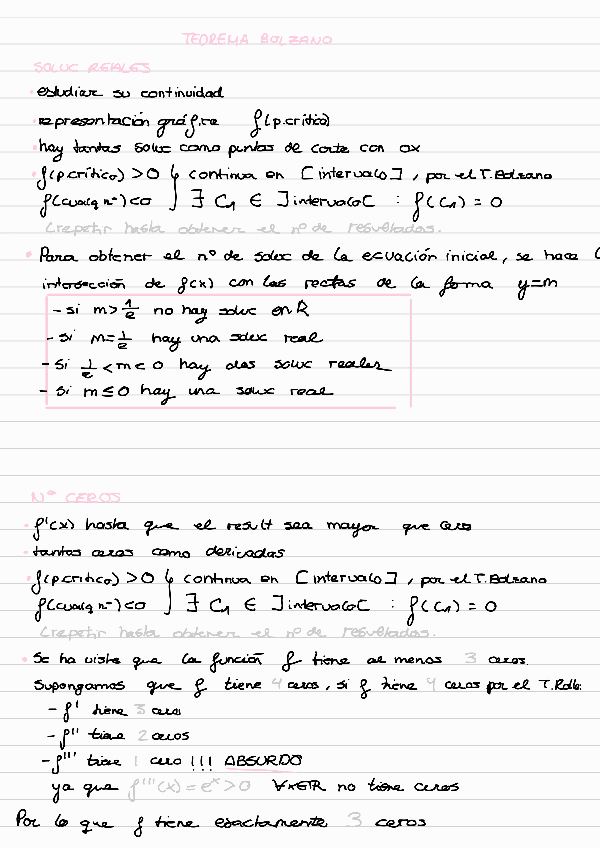 TEOREMA BOLZANO
SOLUC REALES
• estudiar su continuidad
• representación gráfica f(p.crítico)
• hay tantas soluc como puntos de corte con ox
• f(p.crítico) > 0 } continua en [intervalo], por el T. Bolzano
f(cualq nº) < 0 } ∃ C₁ ∈ ]intervalo[ : f(C₁) = 0
(repetir hasta obtener el nº de resultados.
• Para obtener el nº de soluc de la ecuación inicial, se hace
intersección de f(x) con las rectas de la forma y=m
- si m > 1/e no hay soluc en R
- si m = 1/e hay una soluc real
- si 1/e < m < 0 hay dos soluc reales
- si m ≤ 0 hay una soluc real
Nº CEROS
• f'(x) hasta que el result sea mayor que cero
• tantos ceros como derivadas
• f(p.crítico) > 0 } continua en [intervalo], por el T. Bolzano
f(cualq nº) < 0 } ∃ C₁ ∈ ]intervalo[ : f(C₁) = 0
(repetir hasta obtener el nº de resultados.
• Se ha visto que la función f tiene al menos 3 ceros.
Supongamos que f tiene 4 ceros, si f tiene 4 ceros por el T. Rolle:
- f' tiene 3 ceros
- f'' tiene 2 ceros
- f''' tiene 1 cero !!! ABSURDO
ya que f'''(x) = eˣ > 0 ∀x∈R no tiene ceros
Por lo que f tiene exactamente 3 ceros